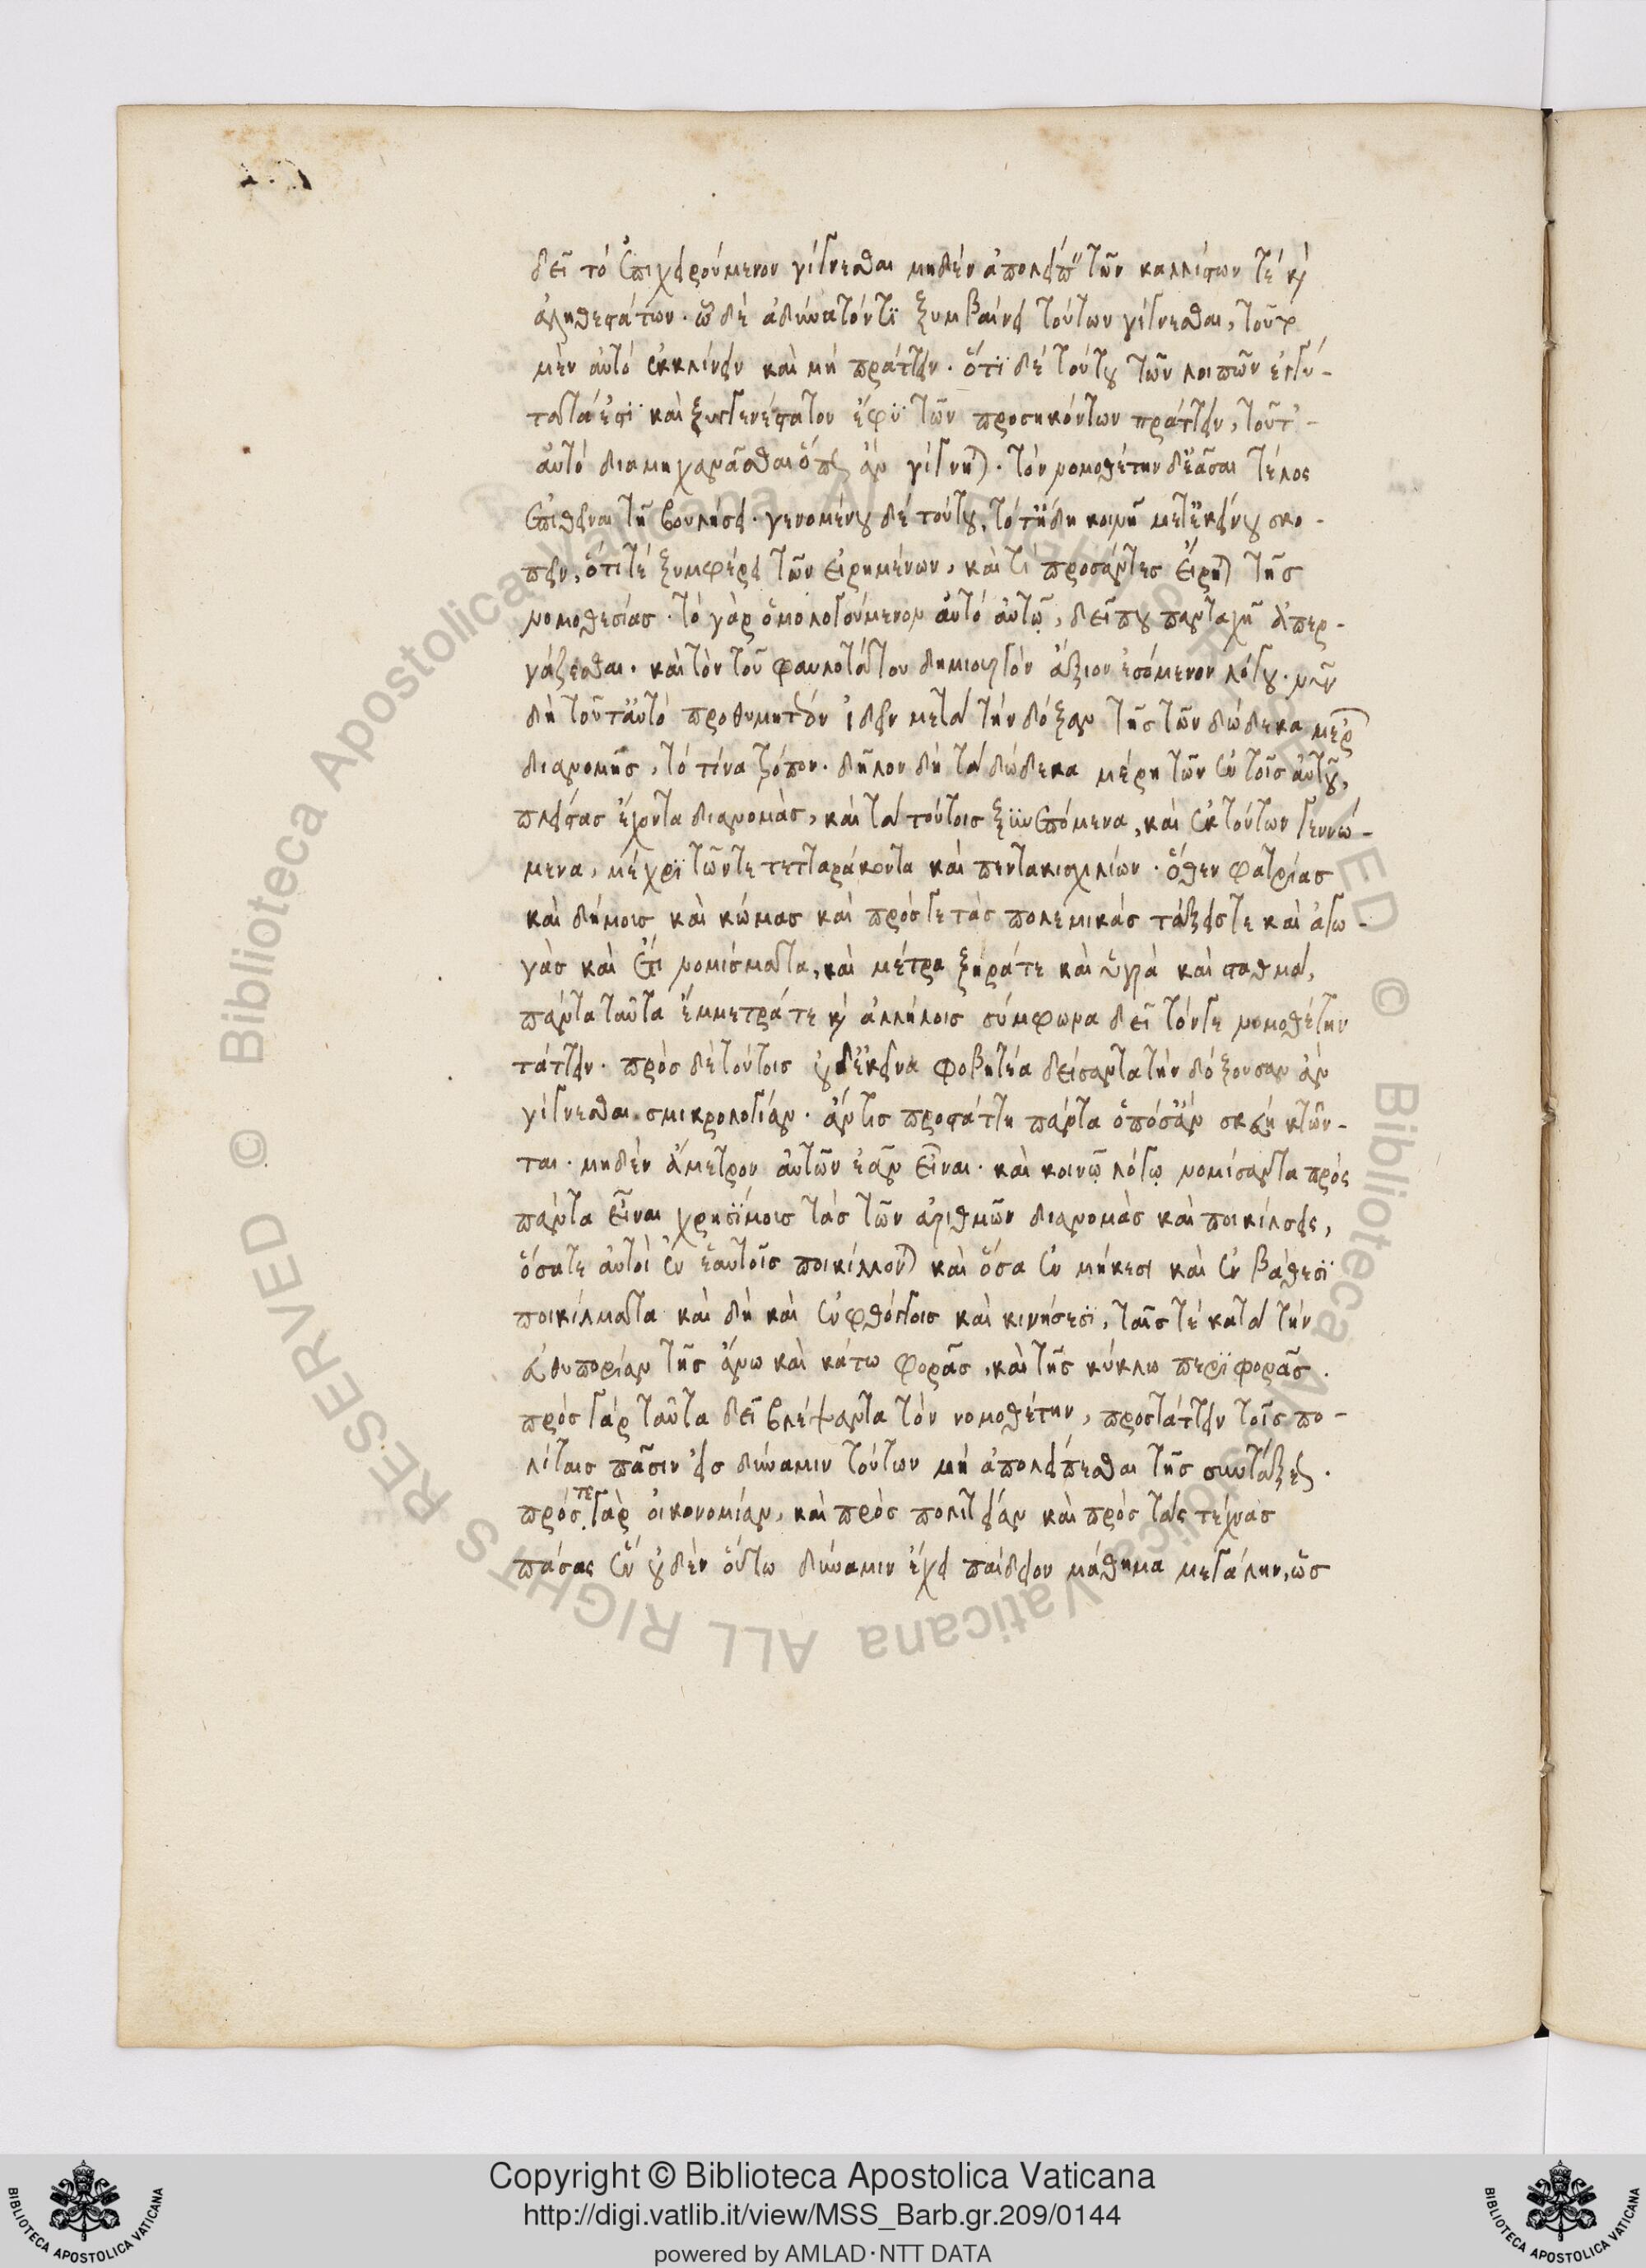 δεῖ τὸ ἐπιχειρούμενον γίγνεσθαι μηδὲν ἀπολείπειν τῶν καλλίστων τὲ καὶ
ἀληθεστάτων· ᾧ δὲ ἀδύνατόν τι ξυμβαίνει τούτων γίγνεσθαι, τοῦτο
μὲν αὐτὸ ἐκκλίνειν καὶ μὴ πράττειν· ὅτι δὲ τούτου τῶν λοιπῶν ἐγγύ-
τατά ἐστι καὶ ξυγγενέστατον ἔφυ τῶν προσηκόντων πράττειν, τοῦτ'
αὐτὸ διαμηχανᾶσθαι ὅπως ἂν γίγνηται· τὸν νομοθέτην δ' ἐᾶσαι τέλος
ἐπιθεῖναι τῇ βουλήσει· γενομένου δὲ τούτου, τότ' ἤδη κοινῇ μετ' ἐκείνου σκο-
πεῖν, ὅτι τὲ ξυμφέρει τῶν εἰρημένων, καὶ τί πρόσαντες εἴρηται τῆς
νομοθεσίας· τὸ γὰρ ὁμολογούμενον αὐτὸ αὑτῷ, δεῖ που πανταχῇ ἀπερ-
γάζεσθαι· καὶ τὸν τοῦ φαυλοτάτου δημιουργὸν ἄξιον ἐσόμενον λόγου· νῦν
δὴ τοῦτ' αὐτὸ προθυμητέον ἰδεῖν μετὰ τὴν δόξαν τῆς τῶν δώδεκα μερῶν
διανομῆς, τὸ τίνα τρόπον· δῆλον δὴ τὰ δώδεκα μέρη τῶν ἐν τοῖς αὐτοῦ,
πλείστας ἔχοντα διανομὰς, καὶ τὰ τούτοις ξυνεπόμενα, καὶ ἐκ τούτων γεννώ-
μενα, μέχρι τῶν τε τετταράκοντα καὶ πεντακισχιλίων· ὅθεν φατρίας
καὶ δήμοις καὶ κώμας καὶ πρός γε τὰς πολεμικὰς τάξεις τε καὶ ἀγω-
γὰς καὶ ἔτι νομίσματα, καὶ μέτρα ξηρά τε καὶ ὑγρὰ καὶ σταθμὰ,
πάντα ταῦτα ἔμμετρά τε καὶ ἀλλήλοις σύμφωνα δεῖ τόν γε νομοθέτην
τάττειν· πρὸς δὲ τούτοις οὐδ' ἐκεῖνα φοβητέα δείσαντα τὴν δόξουσαν ἂν
γίγνεσθαι σμικρολογίαν· ἄν τις προστάττῃ πάντα ὁπόσ' ἂν σκεύη κτῶν-
ται· μηδὲν ἄμετρον αὐτῶν ἐᾶν εἶναι· καὶ κοινῷ λόγῳ νομίσαντα πρὸς
πάντα εἶναι χρησίμοις τὰς τῶν ἀριθμῶν διανομὰς καὶ ποικίλσεις,
ὅσα τε αὐτοὶ ἐν ἑαυτοῖς ποικίλλονται καὶ ὅσα ἐν μήκεσι καὶ ἐν βάθεσι
ποικίλματα καὶ δὴ καὶ ἐν φθόγγοις καὶ κινήσεσι, ταῖς τὲ κατὰ τὴν
εὐθυπορίαν τῆς ἄνω καὶ κάτω φορᾶς, καὶ τῆς κύκλω περιφορᾶς·
πρὸς γὰρ ταῦτα δεῖ βλέψαντα τὸν νομοθέτην, προστάττειν τοῖς πο-
λίταις πᾶσιν εἰς δύναμιν τούτων μὴ ἀπολείπεσθαι τῆς συντάξεως·
πρός τε γὰρ οἰκονομίαν, καὶ πρὸς πολιτείαν καὶ πρὸς τὰς τέχνας
πάσας ἓν οὐδὲν οὕτω δύναμιν ἔχει παίδειον μάθημα μεγάλην, ὡς
Copyright © Biblioteca Apostolica Vaticana
http://digi.vatlib.it/view/MSS_Barb.gr.209/0144
powered by AMLAD·NTT DATA